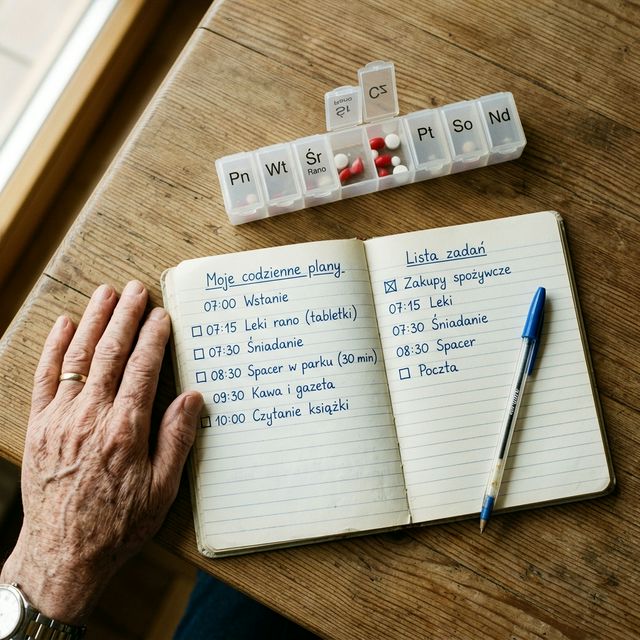 Rano
Śr
Cz
Pn Wt Śr Pt So Nd
Rano
Moje codzienne plany
07:00 Wstanie
☐ 07:15 Leki rano (tabletki)
☐ 07:30 Śniadanie
☐ 08:30 Spacer w parku (30 min)
09:30 Kawa i gazeta
☐ 10:00 Czytanie książki
Lista zadań
☒ Zakupy spożywcze
07:15 Leki
07:30 Śniadanie
08:30 Spacer
☐ Poczta